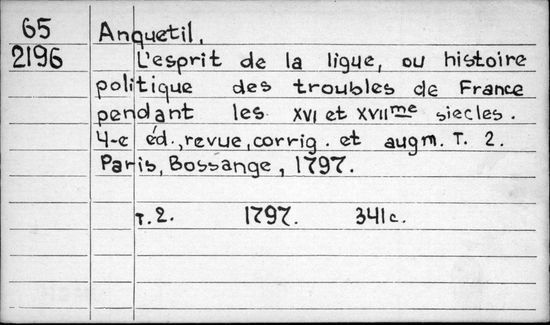 65 Anquetil.
2196 L'esprit de la ligue, ou histoire
politique des troubles de France
pendant les XVI et XVIIme siecles.
4-e éd., revue, corrig. et augm. T. 2.
Paris, Bossange, 1797.
T. 2. 1797. 341 c.